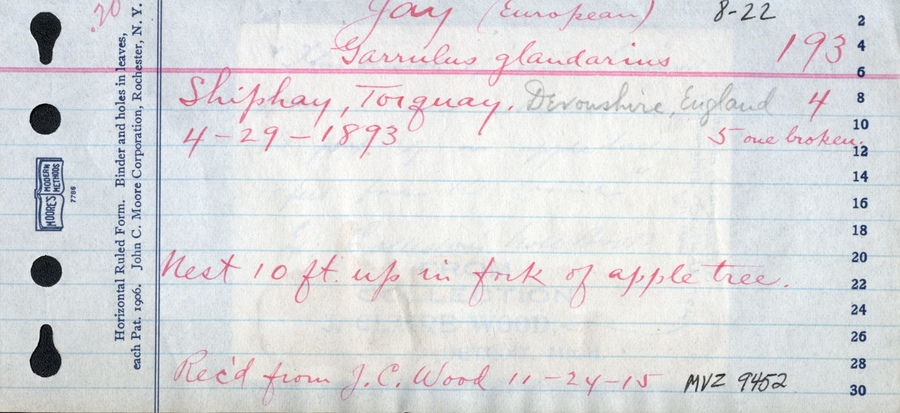 20 Jay (European) 8-22
Garrulus glandarius 193
Shiphay, Torquay. Devonshire, England 4
4-29-1893 5 one broken.
Nest 10 ft. up in fork of apple tree.
Rec'd from J.C. Wood 11-24-15 MVZ 9452
Horizontal Ruled Form. Binder and holes in leaves,
each Pat. 1906. John C. Moore Corporation, Rochester, N. Y.
MOORE'S MODERN METHODS
7706
2
4
6
8
10
12
14
16
18
20
22
24
26
28
30